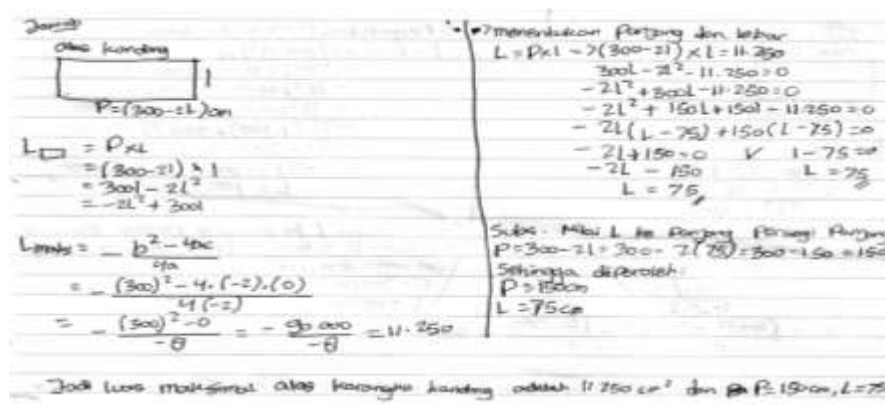 Jawab
alas kandang
l
P=(300-2l)cm
L▭ = P×l
= (300-2l) × l
= 300l - 2l²
= -2l² + 300l
Lmaks = - b²-4ac
4a
= - (300)² - 4.(-2).(0)
4(-2)
= - (300)² - 0 = - 90 000 = 11.250
-8 -8
menentukan Panjang dan lebar
L = P×l → (300-2l) × l = 11.250
300l - 2l² - 11.250 = 0
-2l² + 300l - 11.250 = 0
-2l² + 150l + 150l - 11250 = 0
-2l(l - 75) + 150(l - 75) = 0
-2l + 150 = 0 V l - 75 = 0
-2l - 150 L = 75
L = 75
Subs. Nilai L ke Panjang Persegi Panjang
P = 300 - 2l = 300 - 2(75) = 300 - 150 = 150
Sehingga diperoleh:
P = 150cm
L = 75cm
Jadi luas maksimal alas kerangka kandang adalah 11250 cm² dan P = 150cm, L = 75